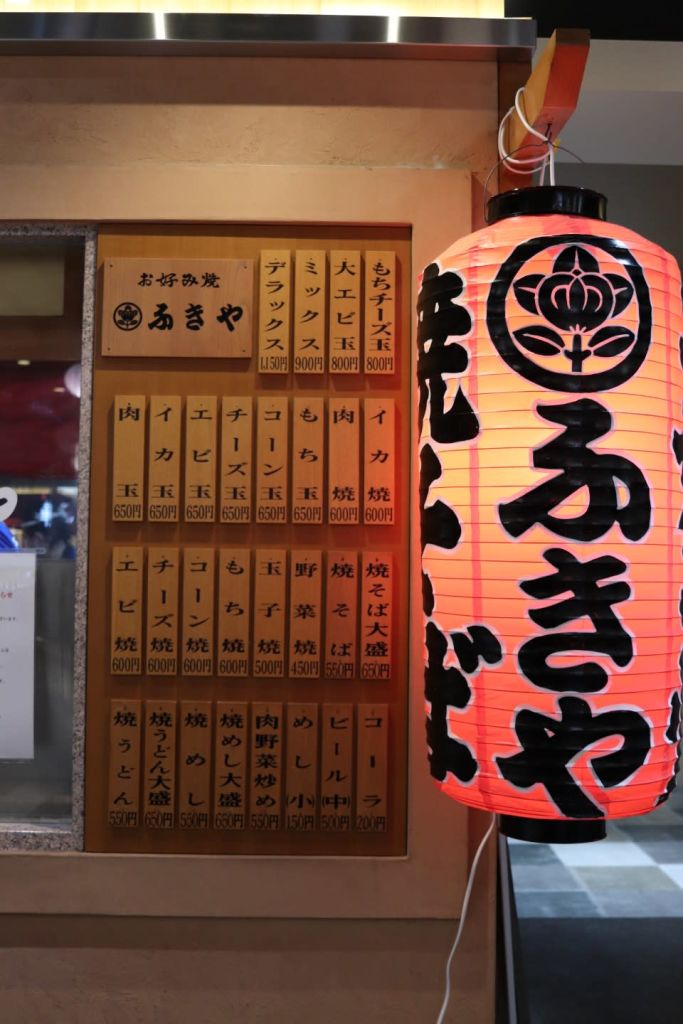 お好み焼
ふきや
デラックス 1,150円
ミックス 900円
大エビ玉 800円
もちチーズ玉 800円
肉玉 650円
イカ玉 650円
エビ玉 650円
チーズ玉 650円
コーン玉 650円
もち玉 650円
肉焼 600円
イカ焼 600円
エビ焼 600円
チーズ焼 600円
コーン焼 600円
もち焼 600円
玉子焼 500円
野菜焼 450円
焼そば 550円
焼そば大盛 650円
焼うどん 550円
焼うどん大盛 650円
焼めし 550円
焼めし大盛 650円
肉野菜炒め 550円
めし(小) 150円
ビール(中) 500円
コーラ 200円
焼そば
ふきや